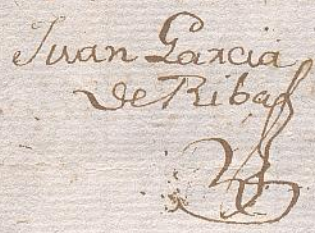 Juan Garcia
de Ribas